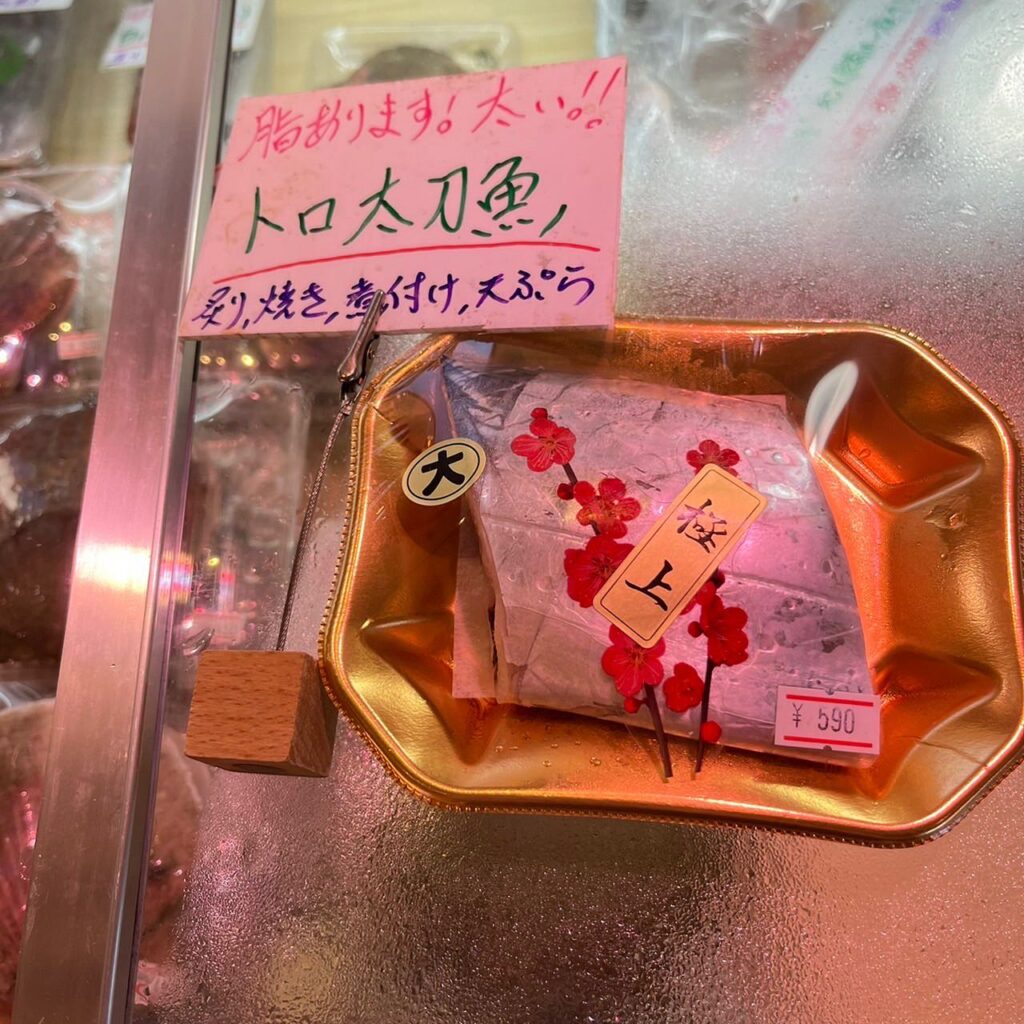 脂あります！太い！！
トロ太刀魚
炙り,焼き,煮付け,天ぷら
大
極上
¥ 590